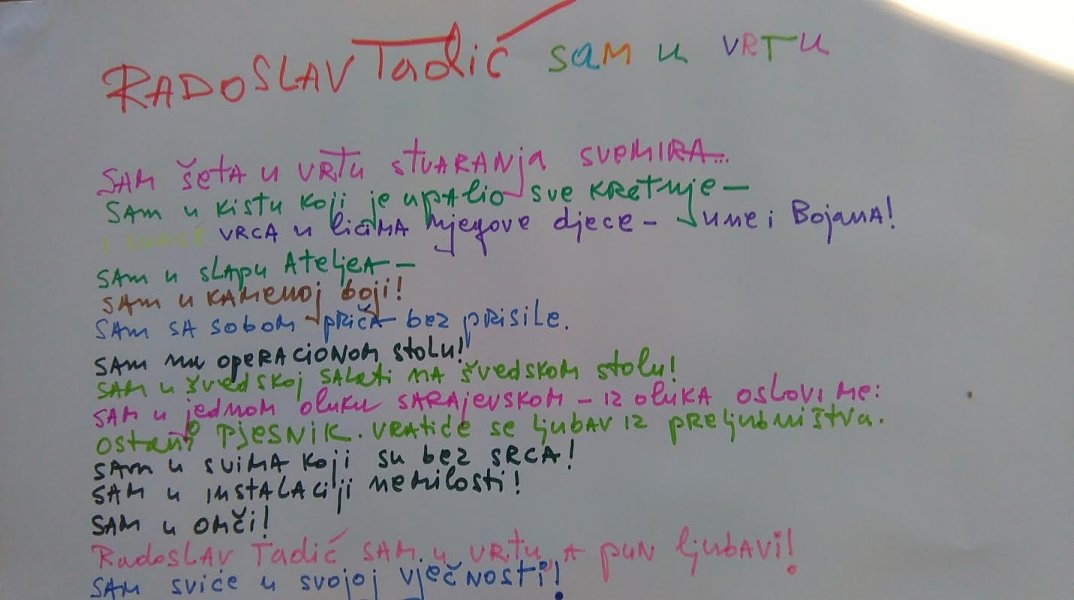 RADOSLAV Tadić SAM u VRTU
SAM šetA u VRtu stVARANJA SVEMIRA...
SAm u kistu koji je upALio sve KRetnje –
VRCA u licIMA njegove djece – June i BojaNA!
SAm u slApu AteljeA –
SAM u KAMenoj boji!
SAm SA sobom pRiČA bez pRisile.
SAm na opeRAcionom stolu!
SAM u švedskoj SALAti NA švedskom stolu!
SAM u jednom oluku SARAjevskom – iz olukA oslovi me:
OstAni PJESNIK. VRAtiće se ljubAV iz pReljubništva.
SAm u sviMA koji su bez SRCA!
SAM u INStALAciji nemilosti!
SAM u omči!
RAdoSLAV TAdić SAM u VRtu, A pun ljubavi!
SAM sviće u svojoj vječnosti!